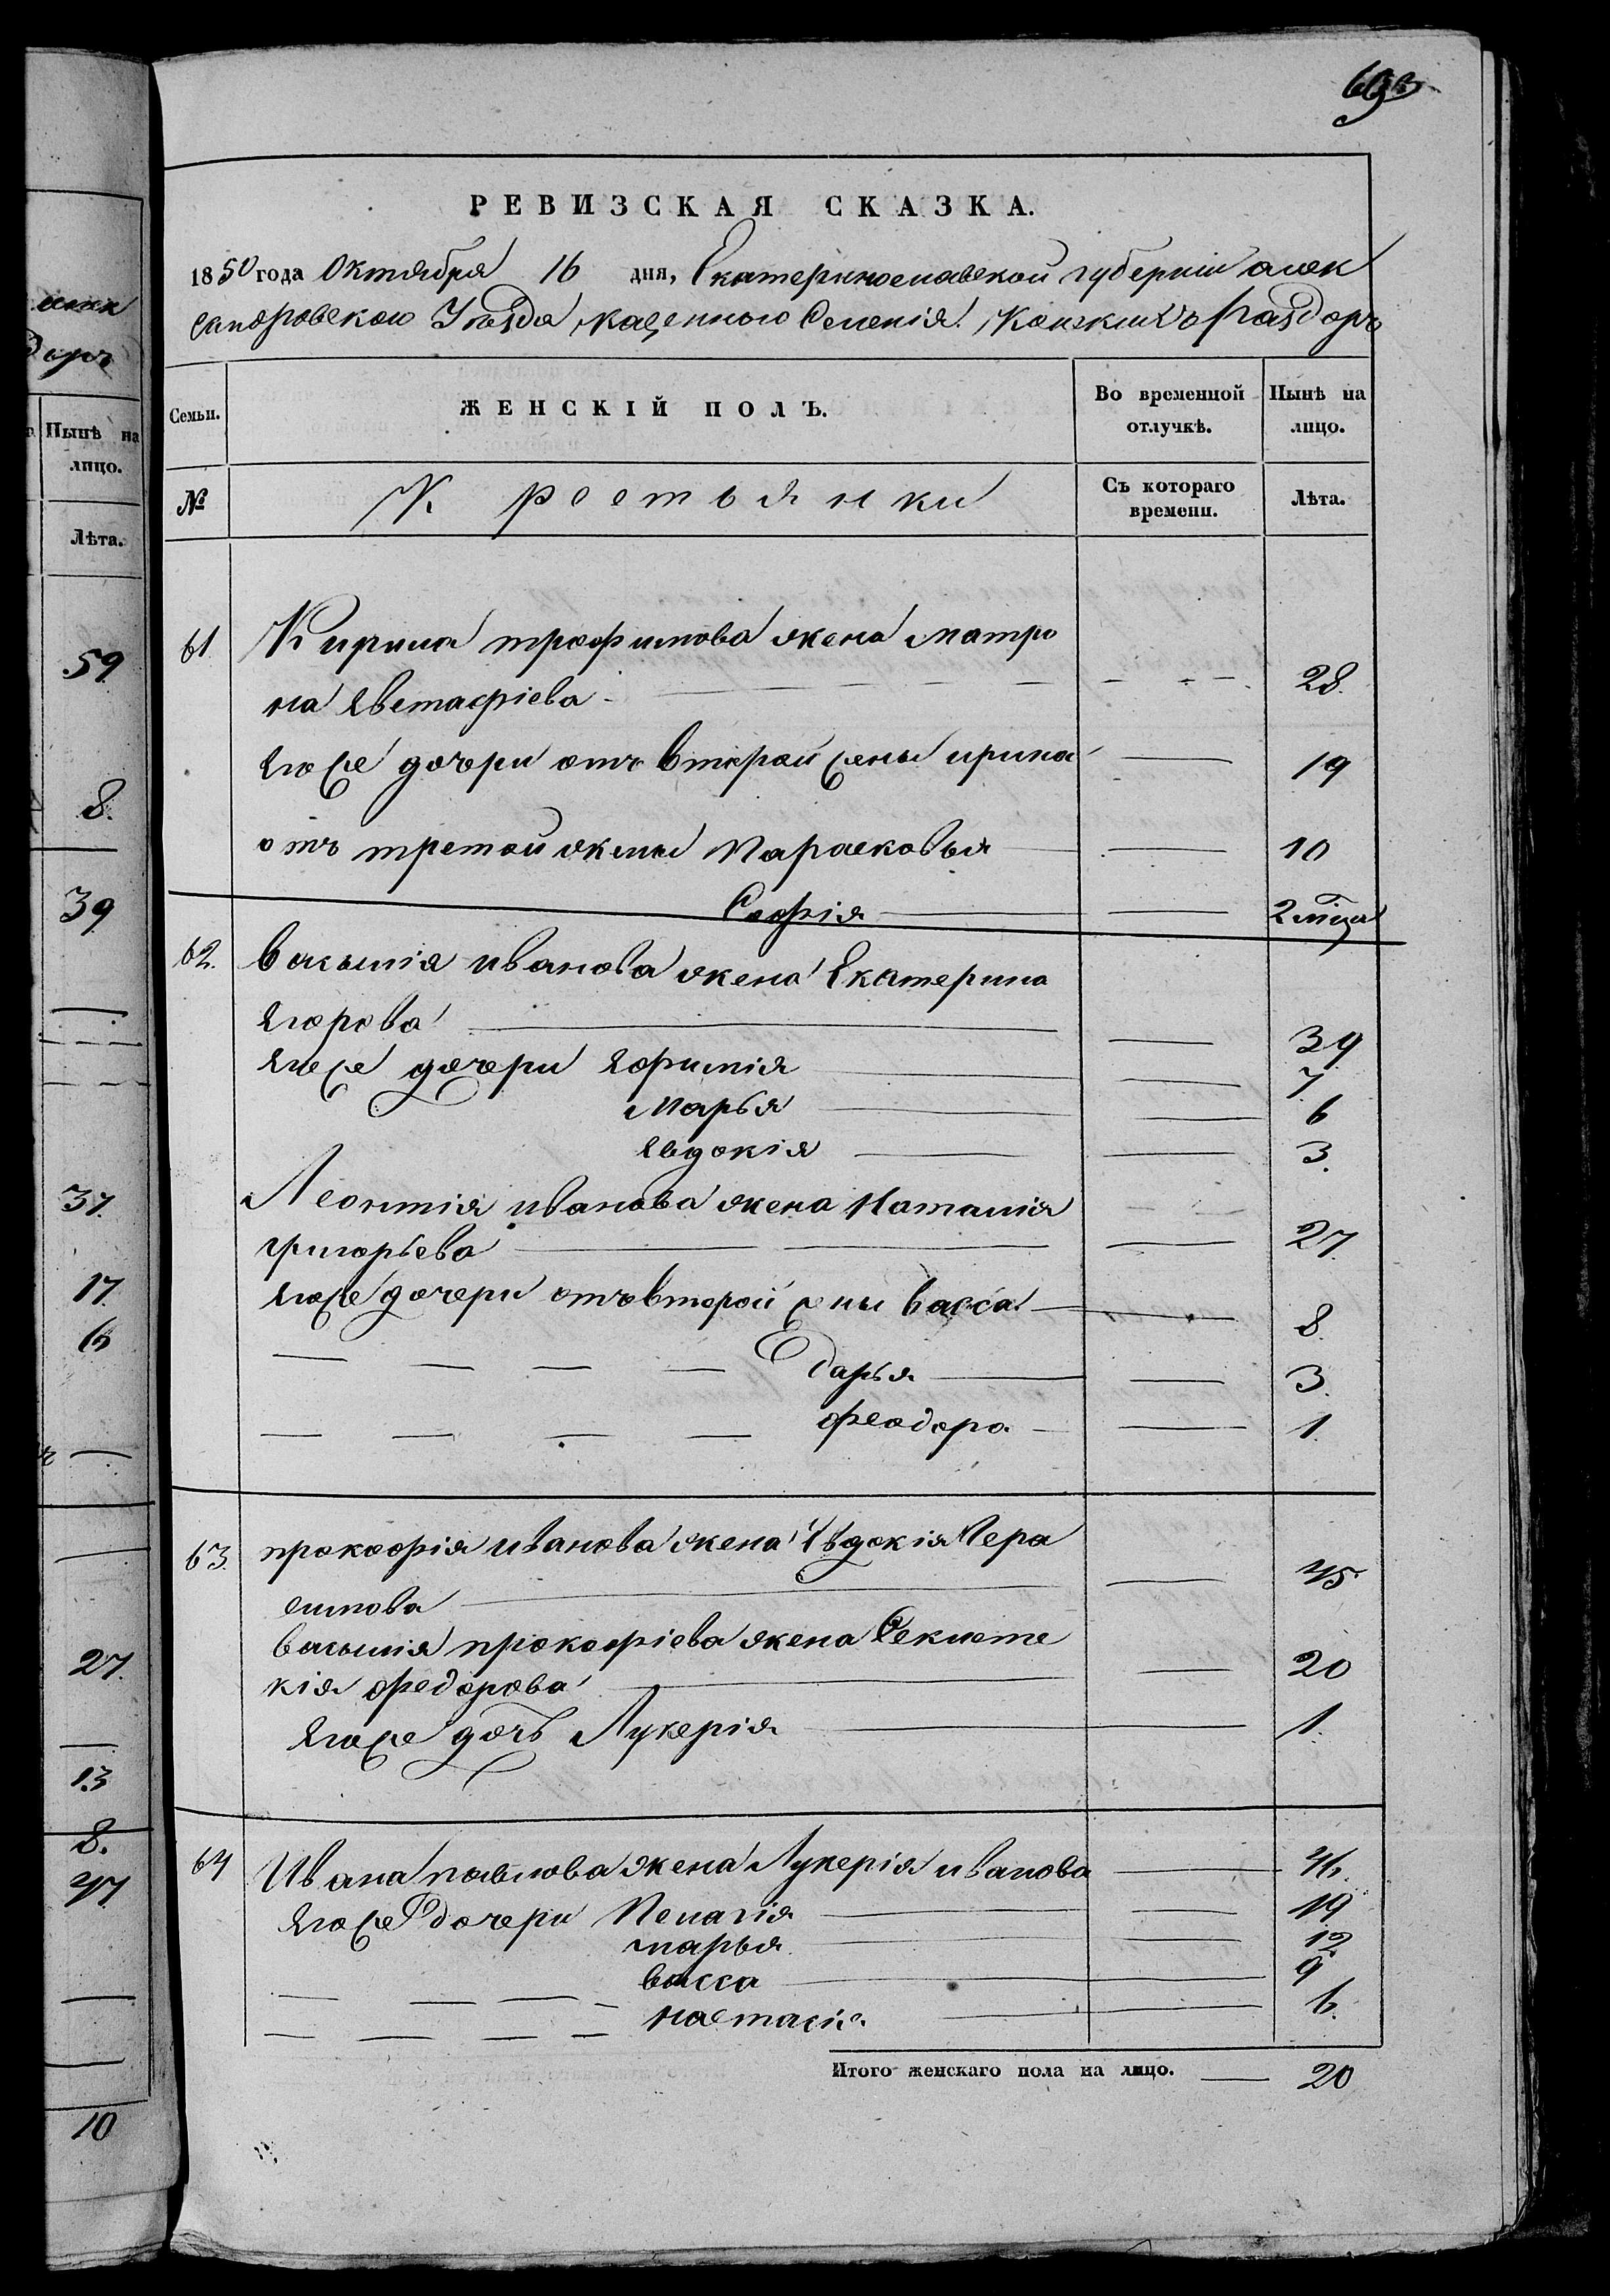 693
РЕВИЗСКАЯ СКАЗКА.
1850 года Октября 16 дня, Екатеринославской губерніи алек
сандровскою Уѣзда, казеннаго Селенія. Конскихъ Раздоръ
Семьи.
ЖЕНСКІЙ ПОЛЪ.
Во временной отлучкѣ.
Нынѣ на лицо.
№
Крестьянки
Съ котораго времени.
Лѣта.
61 Кирила трофимова жена матро
на Евстафіева - 28.
Егоже дочери отъ второй жены ирина 19
отъ третой жены Парасковья 10
Софія 2 мѣца
62. василія иванова жена Екатерина
Егорова 39
Егоже дочери Ефимія 7
Марья 6
Евдокія 3.
Леонтія иванова жена Наталія
григорьева 27.
Егоже дочери отъ второй жены васса 8.
дарья 3.
феодора 1.
63. прокофія иванова жена Евдокія Гера
симова 45.
василія прокофіева жена Феклете
кія федорова 20
Егоже дочь Лукерія 1.
64 Ивана павлова жена Лукерія иванова 46.
Егоже дочери Пелагія 19
марья 12
васса 9
настасія 6.
Итого женскаго пола на лицо. 20
доръ
Нынѣ на
лицо.
Лѣта.
59.
8.
39
37.
17.
6
27.
13
8.
47.
10